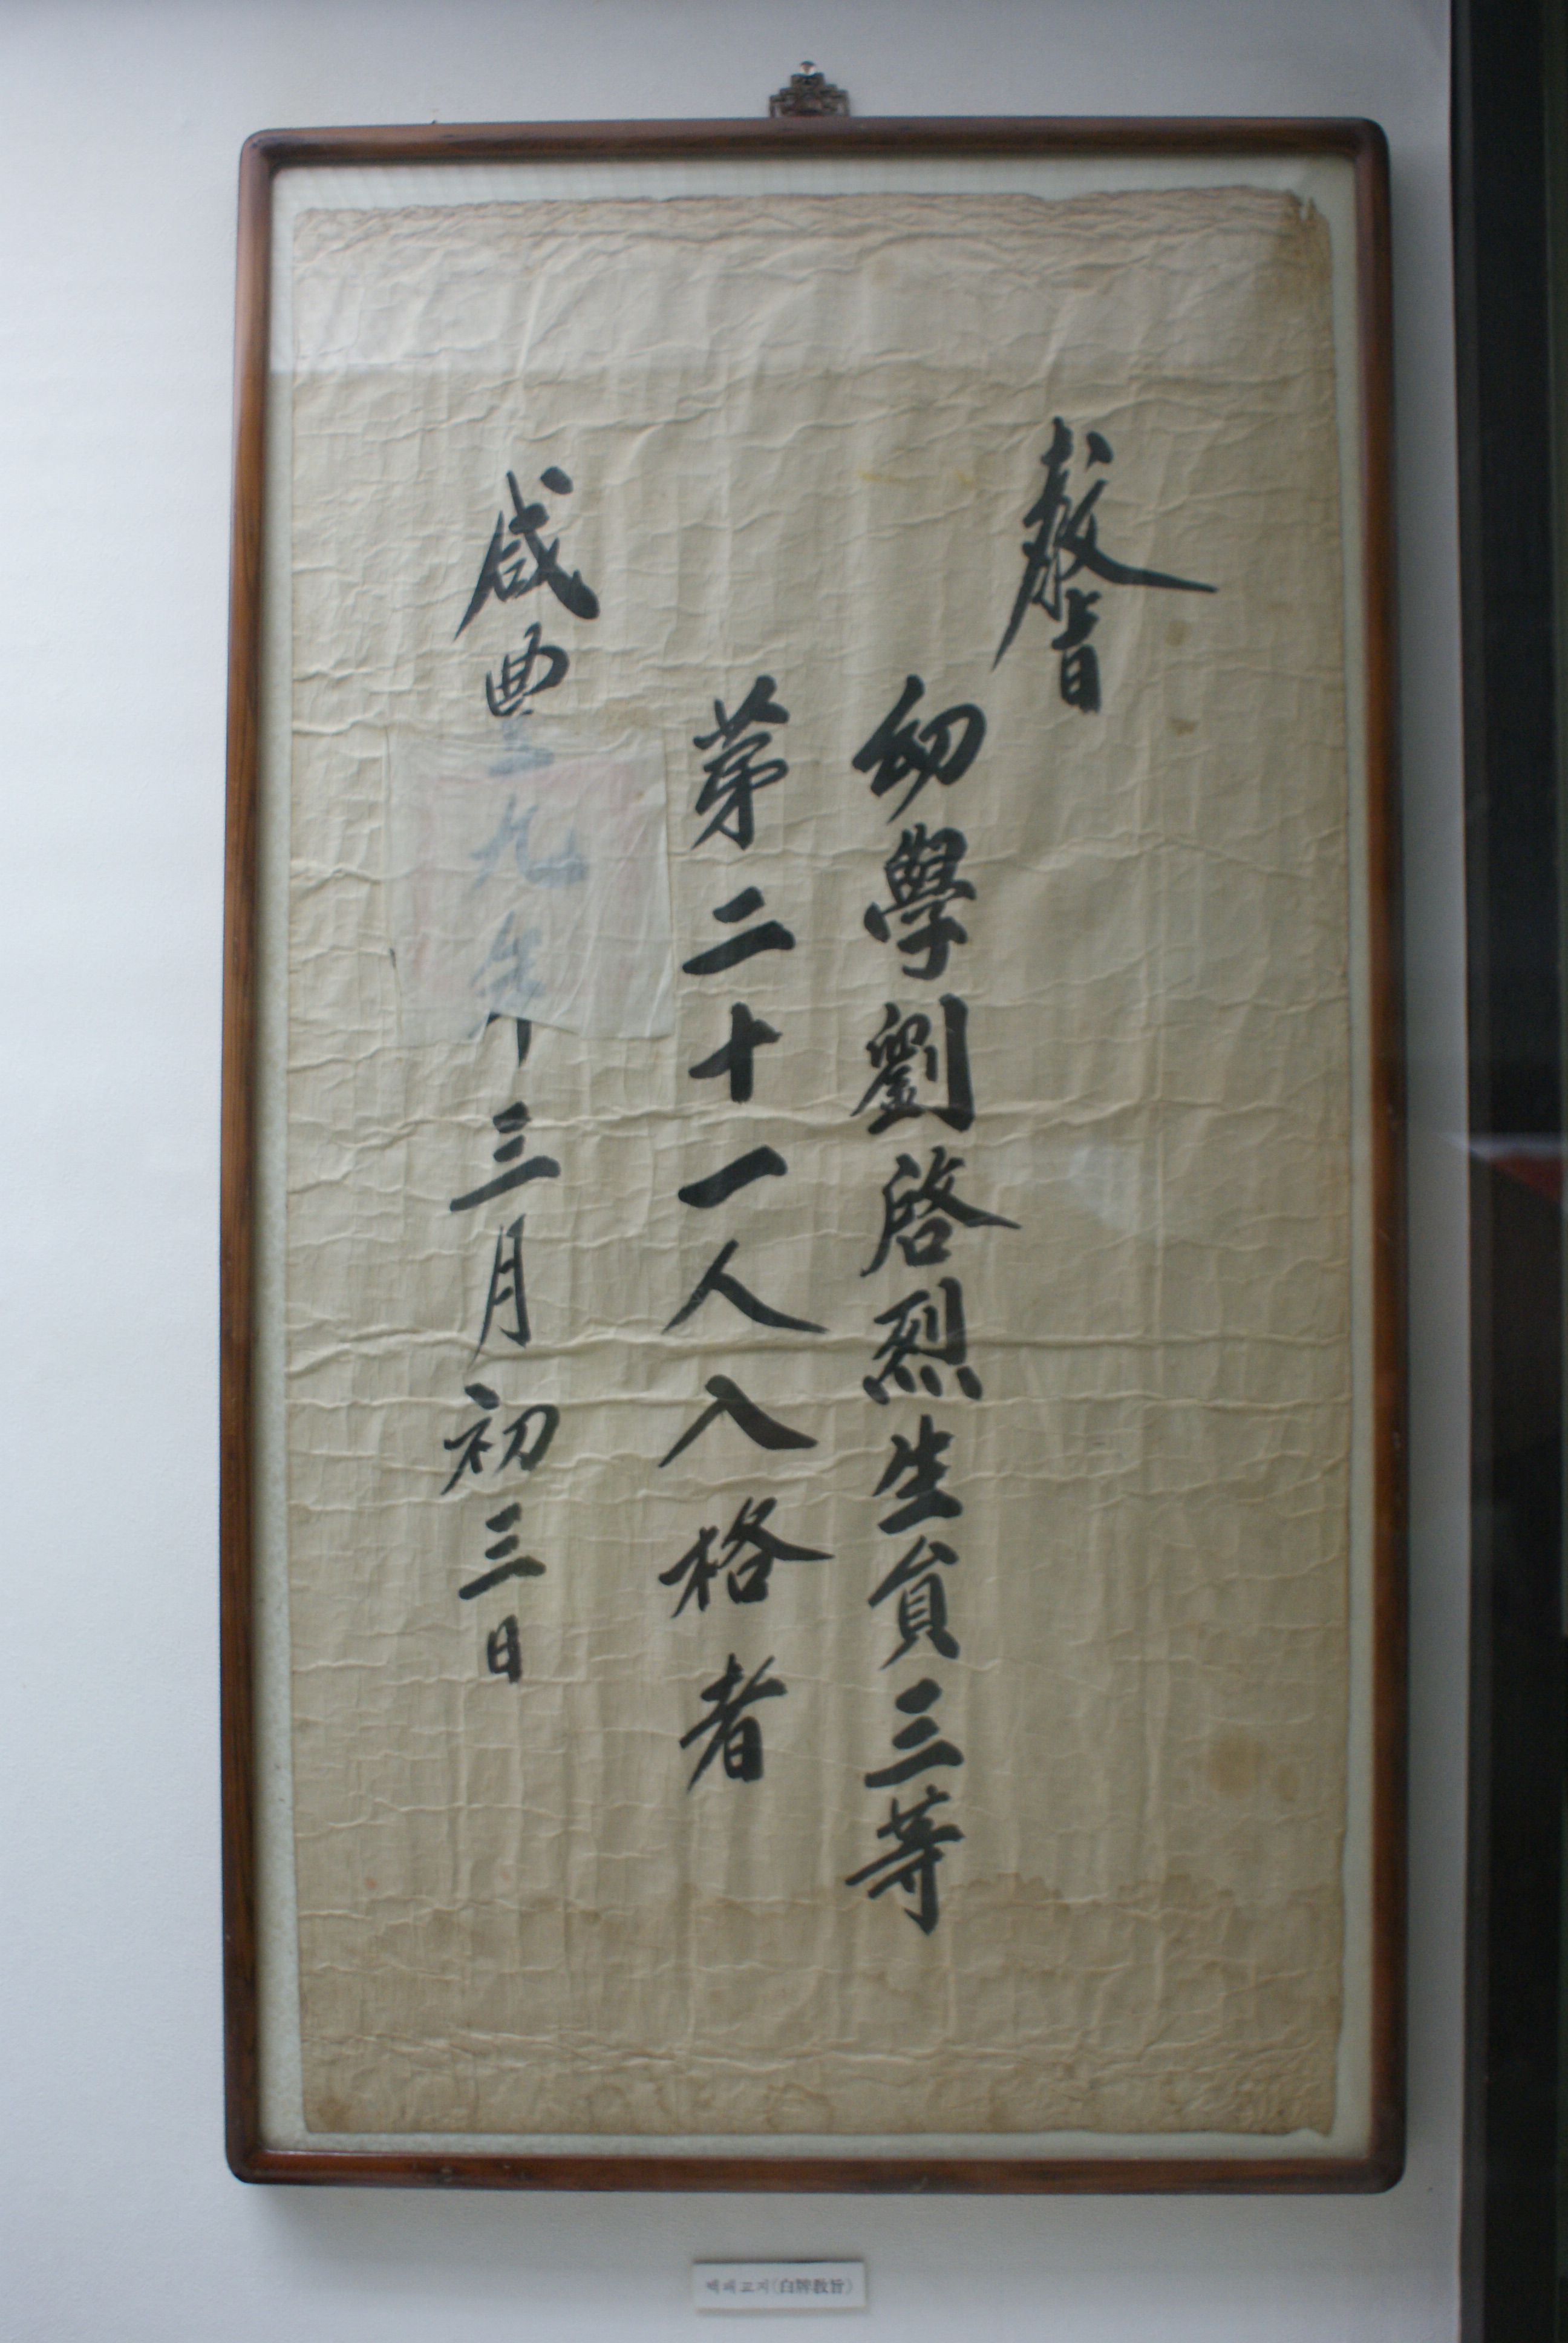 敎旨
幼學劉啓烈生員三等
第二十一人入格者
咸豊九年三月初三日
백패교지(白牌敎旨)